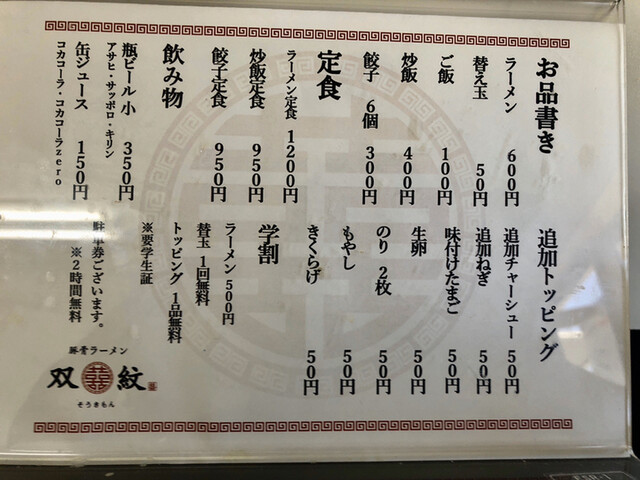 お品書き
ラーメン 600円
替え玉 50円
ご飯 100円
炒飯 400円
餃子 6個 300円
定食
ラーメン定食 1200円
炒飯定食 950円
餃子定食 950円
飲み物
瓶ビール 小 350円
アサヒ・サッポロ・キリン
缶ジュース 150円
コカコーラ・コカコーラzero
追加トッピング
追加チャーシュー 50円
追加ねぎ 50円
味付けたまご 50円
生卵 50円
のり 2枚 50円
もやし 50円
きくらげ 50円
学割
ラーメン 500円
替玉 1回無料
トッピング 1品無料
※要学生証
駐車券ございます。
※2時間無料
豚骨ラーメン
双 紋
そうきもん